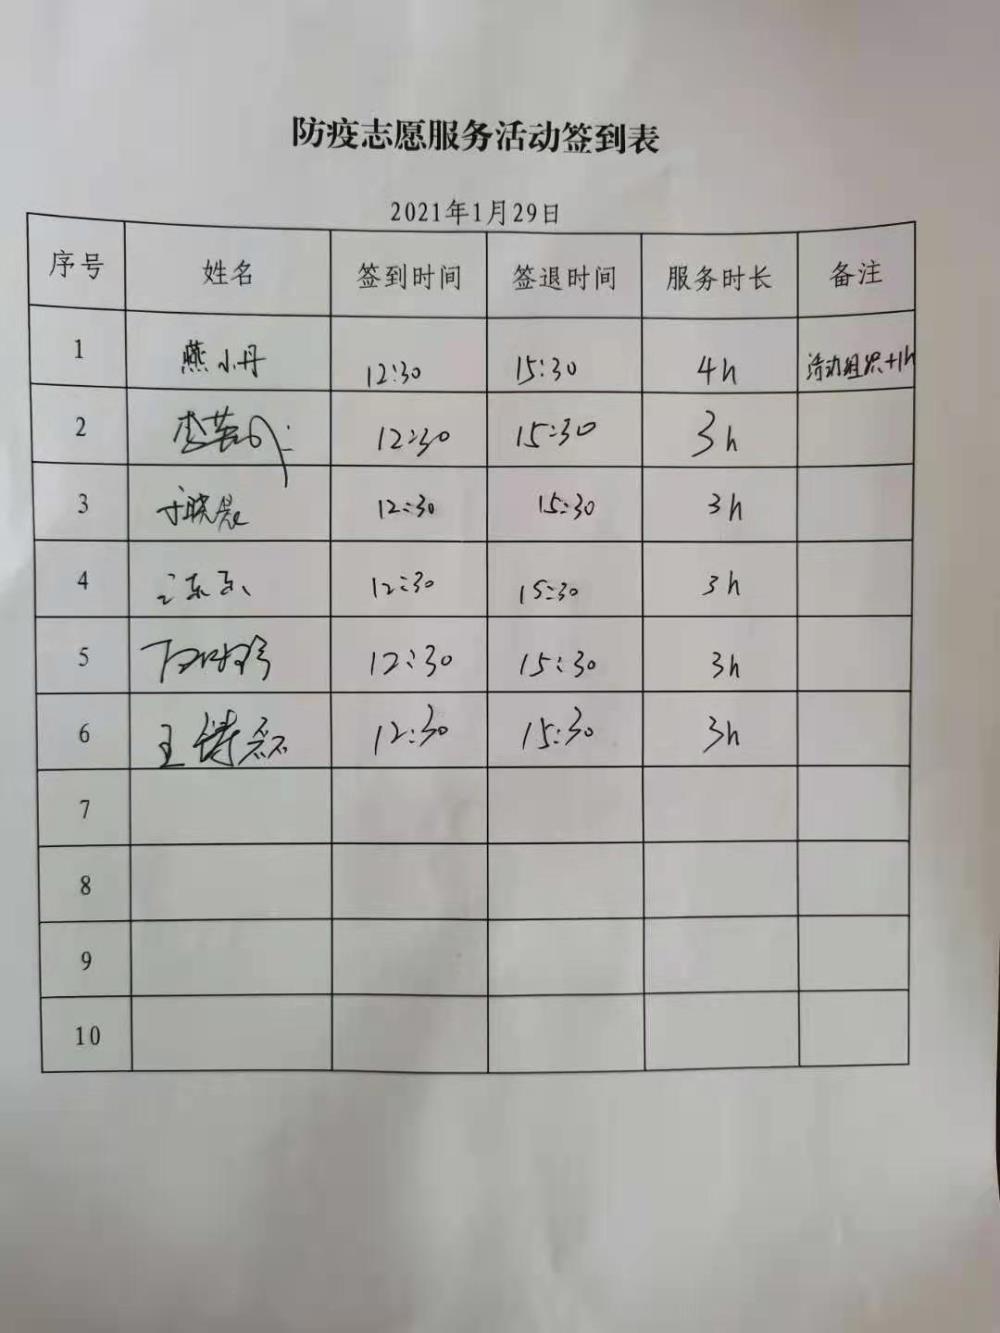 防疫志愿服务活动签到表
2021年1月29日
序号 姓名 签到时间 签退时间 服务时长 备注
1 燕小丹 12:30 15:30 4h 活动组织+1h
2 12:30 15:30 3h
3 于晓晨 12:30 15:30 3h
4 12:30 15:30 3h
5 12:30 15:30 3h
6 王诗磊 12:30 15:30 3h
7
8
9
10